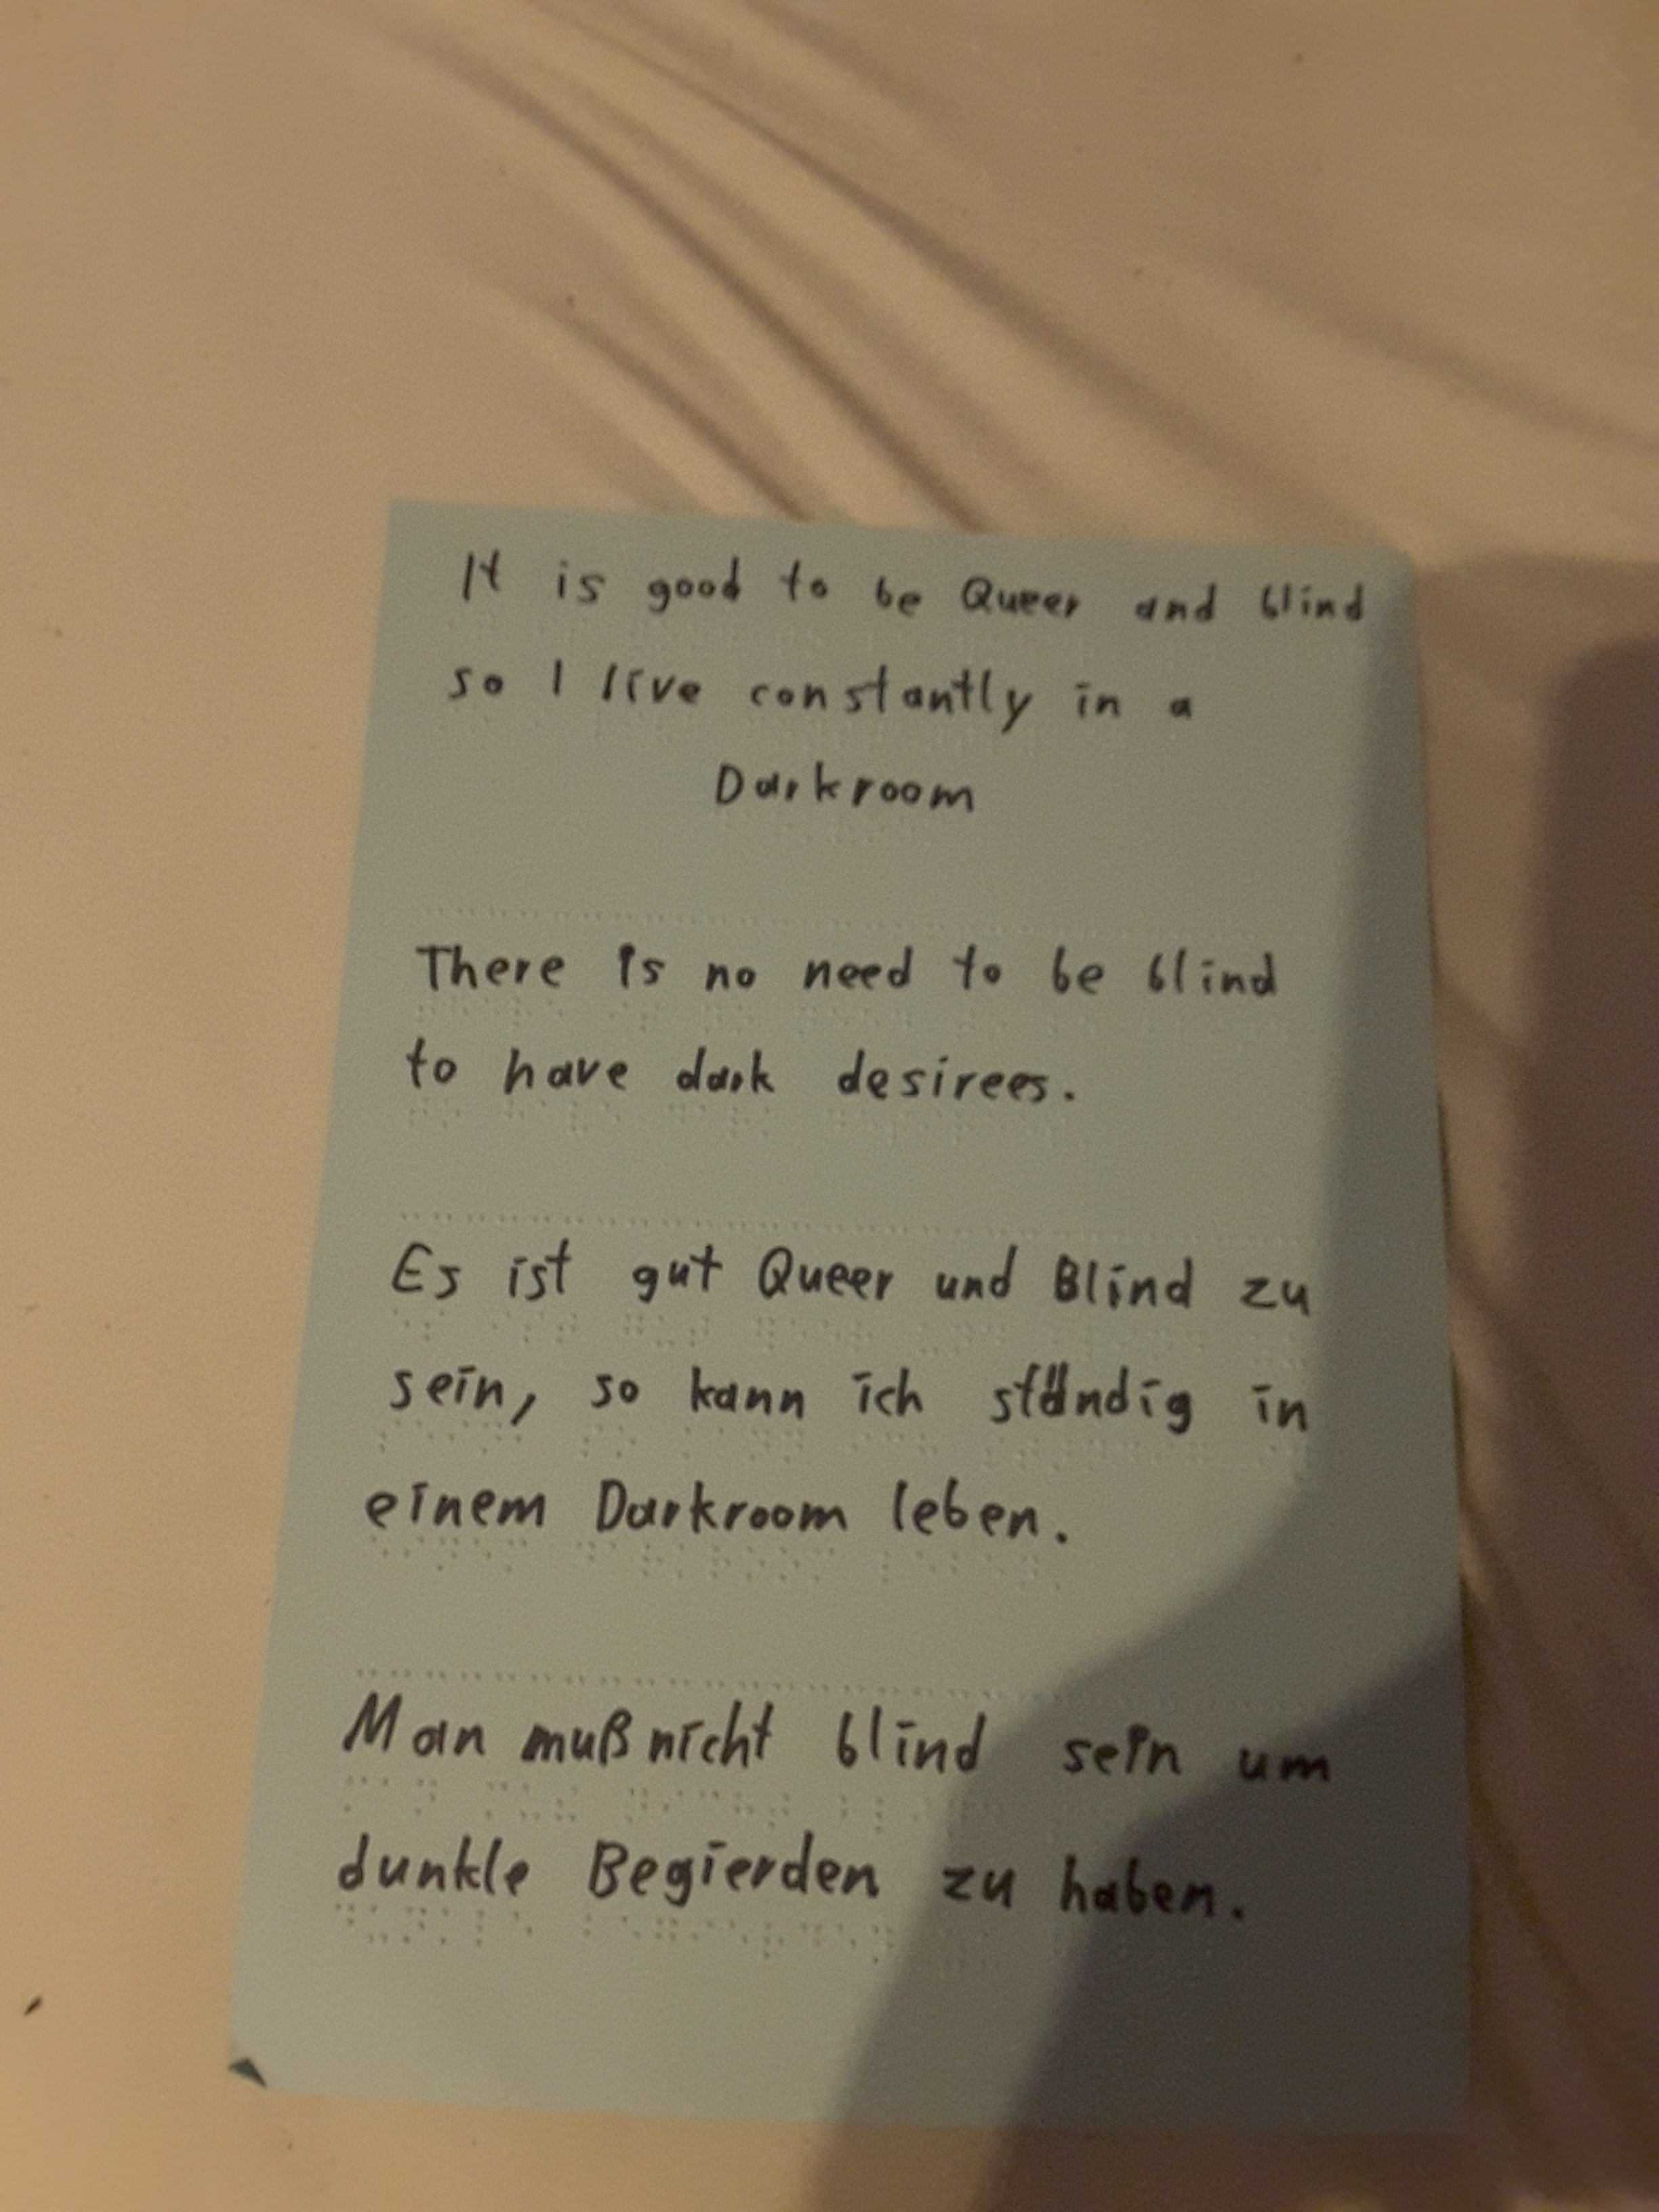 It is good to be Queer and blind
so I live constantly in a
Darkroom
There is no need to be blind
to have dark desirees.
Es ist gut Queer und Blind zu
sein, so kann ich ständig in
einem Darkroom leben.
Man muß nicht blind sein um
dunkle Begierden zu haben.